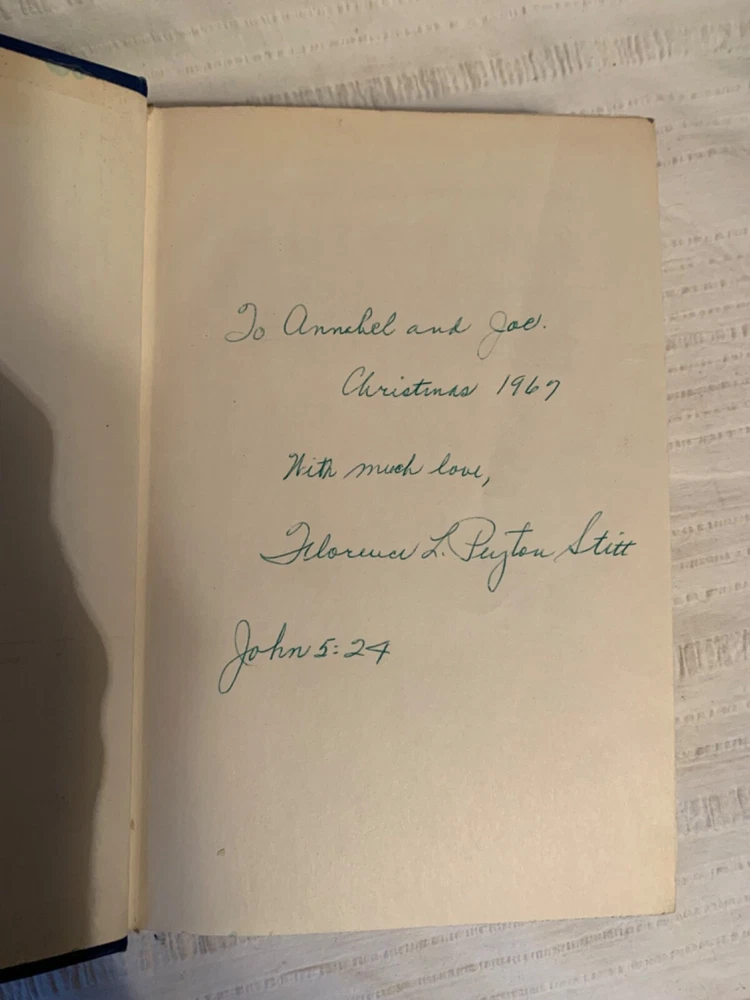 To Annabel and Joe.
Christmas 1967
With much love,
Florence L. Peyton Stitt
John 5:24